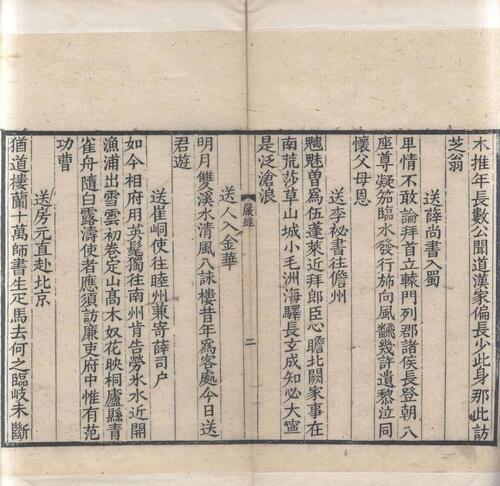 木推年長數公聞道漢家偏長少此身那此訪
芝翁
送薛尚書入蜀
卑情不敢論拜首立轅門列郡諸侯長登朝八
座尊凝笳臨水發行斾向風翻幾許遺黎泣同
懷父母恩
送李祕書往儋州
魑魅曽爲伍蓬萊近拜郎臣心瞻北闕家事在
南荒莎草山城小毛洲海驛長玄成知必大寧
是泛滄浪
嚴維
二
送人入金華
明月雙溪水清風八詠樓昔年爲客處今日送
君遊
送崔峒使往睦州兼寄薛司户
如今相府用英髦獨往南州肯告勞氷水近開
漁浦出雪雲初卷定山髙木奴花映桐廬縣青
雀舟隨白露濤使者應須訪廉吏府中惟有范
功曹
送房元直赴北京
猶道樓蘭十萬師書生疋馬去何之臨岐未斷